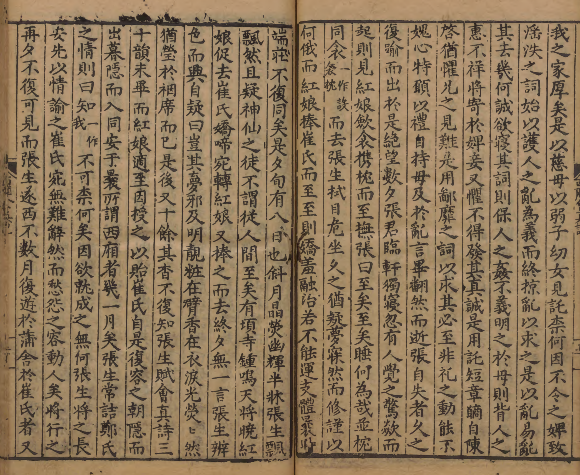 我之家厚矣是以慈母以弱子幼女見託柰何因不令之婢致
滛泆之詞始以護人之亂為義而終掠亂以求之是以亂易亂
其去幾何誠欲寢其詞則保人之姦不義明之於母則背人之
惠不祥將寄於婢妾又懼不得發其真誠是用託短章願自陳
啓猶懼兄之見難是用鄙靡之詞以求其必至非礼之動能不
媿心特願以禮自持毋及於亂言畢翻然而逝張自失者久之
復踰而出於是絶望數夕張君臨軒獨寢忽有人覺之驚欻而
起則見紅娘歛衾携枕而至撫張曰至矣至矣睡何為哉並枕
同衾衾枕作設而去張生拭目危坐久之猶疑夢寐然而修謹以
何俄而紅娘捧崔氏而至至則嬌羞融冶若不能運支體曩時
端莊不復同矣是夕旬有八日也斜月晶熒幽輝半牀張生飄
飄然且疑神仙之徒不謂従人間至矣有頃寺鍾鳴天將曉紅
娘促去崔氏嬌啼宛轉紅娘又捧之而去終夕無一言張生辨
色而興自疑曰豈其夢邪及明靚粧在臂香在衣淚光熒〻然
猶瑩於裀席而已是後又十餘其杳不復知張生賦會真詩三
十韻未畢而紅娘適至因授之以貽崔氏自是復容之朝隱而
出暮隱而入同安于曩所謂西廂者幾一月矣張生常詰鄭氏
之情則曰知一作我不可柰何矣因欲就成之無何張生將之長
安先以情諭之崔氏宛無難辭然而愁怨之容動人矣將行之
再夕不復可見而張生遂西不數月復遊於蒲舍於崔氏者又